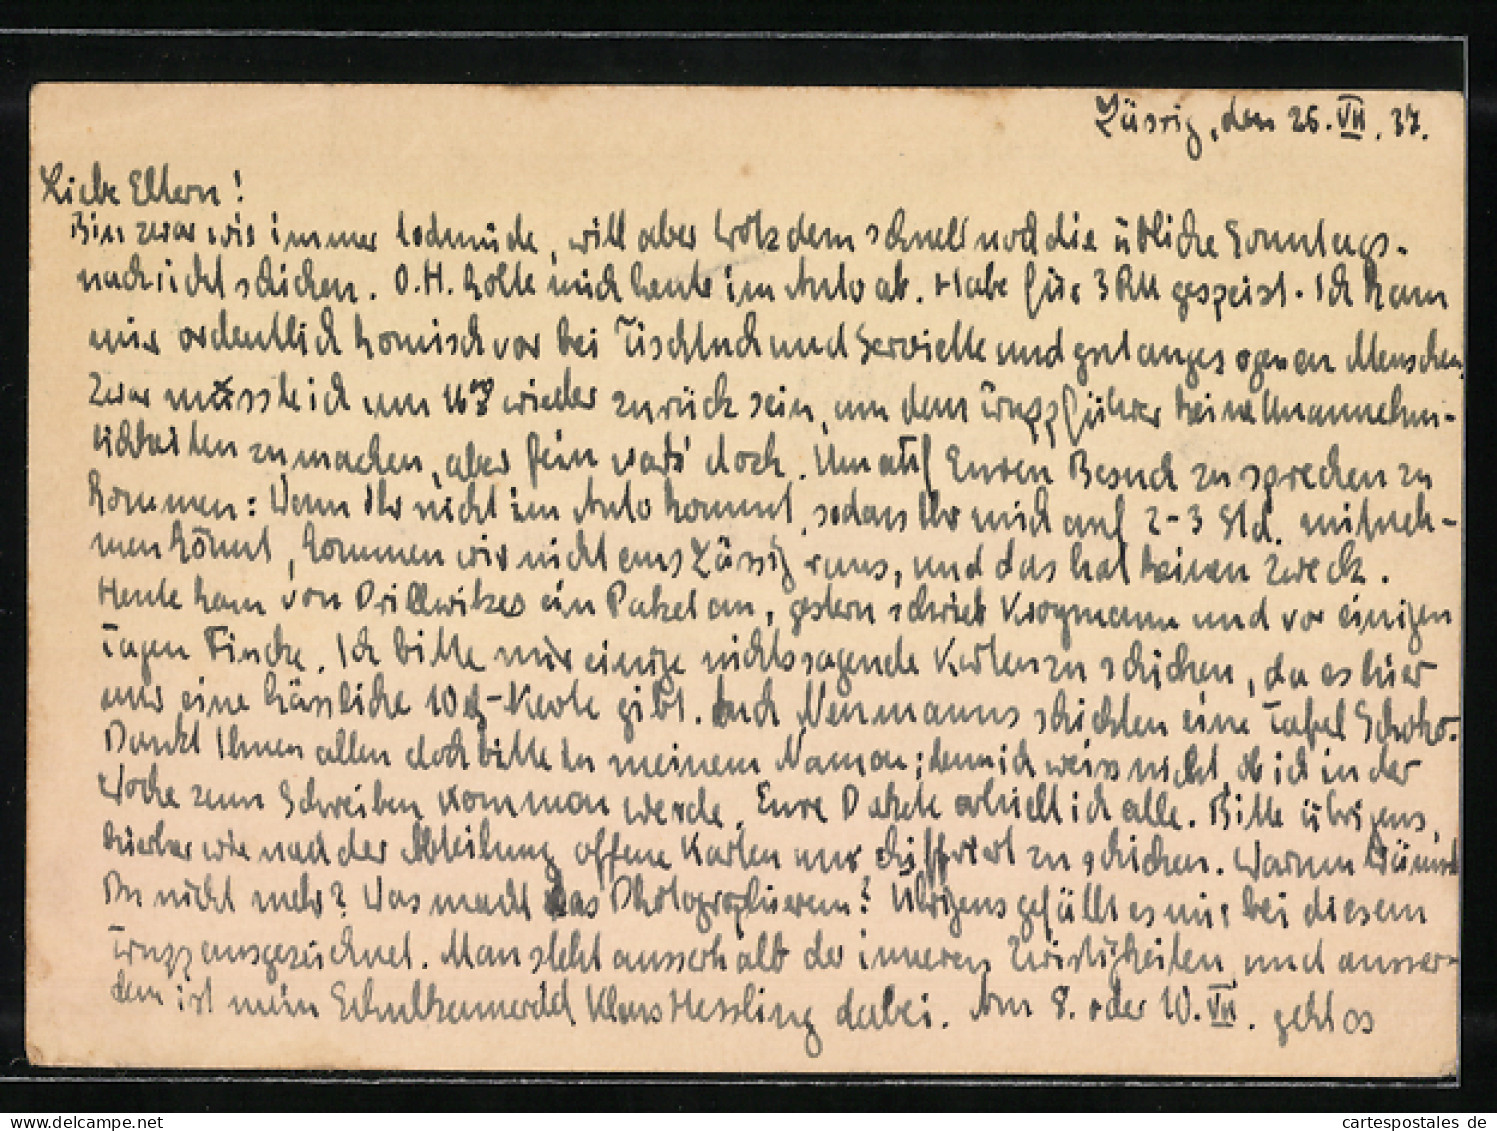 Züssig, den 26.VII.37.
Liebe Eltern!
Bin zwar wie immer todmüde, will aber trotzdem schnell noch die übliche Sonntags-
nachricht schicken. O.H. holte mich heute im Auto ab. Habe für 3 RM gespeist. Ich kam
mir ordentlich komisch vor bei Tischtuch und Serviette und gut angezogenen Menschen.
Zwar müsste ich um wieder zurück sein, um dem Truppführer keine Unannehm-
lichkeiten zu machen, aber fein war's doch. Um auf Euren Besuch zu sprechen zu
kommen: Wenn Ihr nicht im Auto kommt, sodass Ihr mich auf 2-3 Std. mitneh-
men könnt, kommen wir nicht aus Züssig raus, und das hat keinen Zweck.
Heute kam von Drillwitzes ein Paket an, gestern schrieb Krogmann und vor einigen
Tagen Fincke. Ich bitte mir einige nichtssagende Karten zu schicken, da es hier
nur eine hässliche 10 -Karte gibt. Auch Neumanns schickten eine Tafel Schoko.
Dankt Ihnen allen doch bitte in meinem Namen; denn ich weiss nicht, ob ich in der
Woche zum Schreiben kommen werde. Eure Pakete erhielt ich alle. Bitte übrigens,
hierher wie nach der Abteilung offene Karten nur chiffriert zu schicken. Warum
Du nicht mehr? Was macht das Photographieren? Übrigens gefällt es mir bei diesem
Trupp ausgezeichnet. Man steht ausserhalb der inneren Zwistigkeiten und ausser-
dem ist mein Schulkamerad Klaus Hessling dabei. Am 8. oder 10.VIII. geht os
cartespostales de